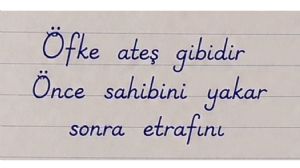 Öfke ateş gibidir
Önce sahibini yakar
sonra etrafını